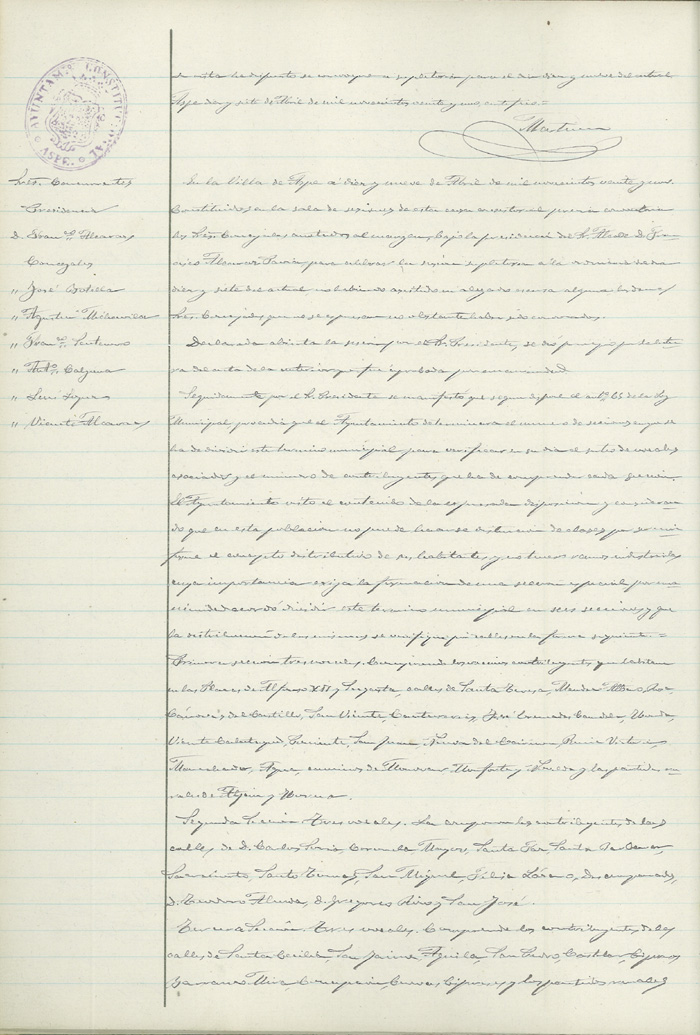 AYUNTAM.º CONSTITUCIONAL ASPE
se cita ha dispuesto se convoque a supletoria para el dia diez y nueve del actual
Aspe diez y siete de Abril de mil novecientos veinte y uno
Sres. Concurrentes
Presidencia
D. Fran.co Alcaraz
González
" José Botella
" Agustín
" Fran.co
" Ant.º Calpena
" Luis López
" Vicente Alcaraz
En la Villa de Aspe a diez y nueve de Abril de mil novecientos veinte y uno.
Constituidos en la sala de sesiones de esta casa consistorial previa convocatoria
los Sres. Concejales anotados al margen, bajo la presidencia del Sr. Alcalde D. Francisco
Alcaraz para celebrar la sesion supletoria a la ordinaria de
diez y siete del actual no habiendo asistido ni alegado escusa alguna los demas
Sres. Concejales que no se espresan no obstante haber sido convocados.
Declarada abierta la sesion por el Sr. Presidente, se dió principio por la lectura
del acta de la anterior que fue aprobada por unanimidad.
Seguidamente por el Sr. Presidente se manifestó que segun dispone el artº 65 de la Ley
Municipal procedia que el Ayuntamiento determinara el numero de secciones en que se
ha de dividir este termino municipal para verificar en su dia el sorteo de vocales
asociados y el numero de contribuyentes que ha de comprender cada seccion.
El Ayuntamiento visto el contenido de la espresada disposicion y considerando
que en esta poblacion no puede hacerse distincion de clases por ser uniforme
el concepto distributivo de sus habitantes, y no tener ramos industriales
cuya importancia exija la formacion de una seccion especial por unanimidad
acordó dividir este termino municipal en seis secciones y que
la distribucion de las mismas se verifique por calles en la forma siguiente =
Primera seccion tres vocales. Comprende los vecinos contribuyentes que habitan
en las Plazas de Alfonso XII y Sagasta, calles de Santa Teresa, Mendez
Cánovas del Castillo, San Vicente, Cantarerías, José
Vicente Calatayud, Poniente, San Juan, Reina Victoria
Matadero, Aspe, caminos de Monovar, Monforte y y las partidas rurales
de Aljau y
Segunda Seccion Tres vocales. La componen los contribuyentes de las
calles de D. Carlos Soria, Coronel Mayor, Santa Faz, Santa
Sarmiento, Santo Tomas, San Miguel, Desamparados,
D. Teodoro Almeda, D. Gregorio Rizo y San José.
Tercera Seccion. Tres vocales. Comprende los contribuyentes de las
calles de Santa Cecilia, San Jaime, Aguila, San Pedro, Castelar,
Barranco, Concepcion, Cuevas, y las partidas rurales